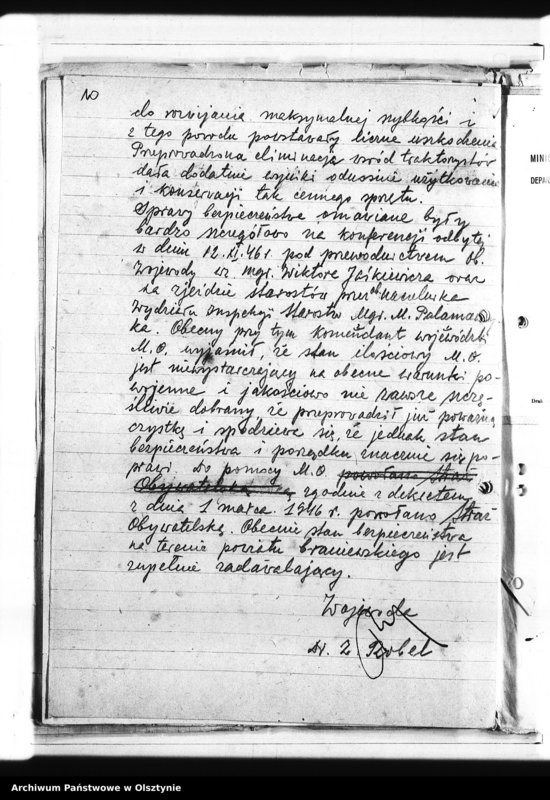 10
do rozwijania maksymalnej szybkości i
z tego powodu powstawały liczne uszkodzenia
Przeprowadzona eliminacja wśród traktorzystów
dała dodatnie wyniki odnośnie użytkowania
i konserwacji tak cennego sprzętu.
Sprawy bezpieczeństwa omawiane były
bardzo szczegółowo na konferencji odbytej
w dniu 12.XI.46 r. pod przewodnictwem ob.
Wojewody wz. mgr. Wiktora Jaśkiewicza oraz
na zjeździe starostów przez ob. naczelnika
Wydziału Inspekcji Starostw Mgr. M. Palamar
ka. Obecny przy tym komendant wojewódzki
M.O. wyjaśnił, że stan ilościowy M.O.
jest niewystarczający na obecne warunki po-
wojenne i jakościowo nie zawsze szczę-
śliwie dobrany, że przeprowadził już poważną
czystkę i spodziewa się, że jednak stan
bezpieczeństwa i porządku znacznie się po-
prawi. Do pomocy M.O powołano Straż
Obywatelską zgodnie z dekretem
z dnia 1 marca. 1946 r. powołano Straż
Obywatelską. Obecnie stan bezpieczeństwa
na terenie powiatu braniewskiego jest
zupełnie zadawalający.
Wojewoda
Dr. Z. Robel
MINI
DEPAR
Archiwum Państwowe w Olsztynie